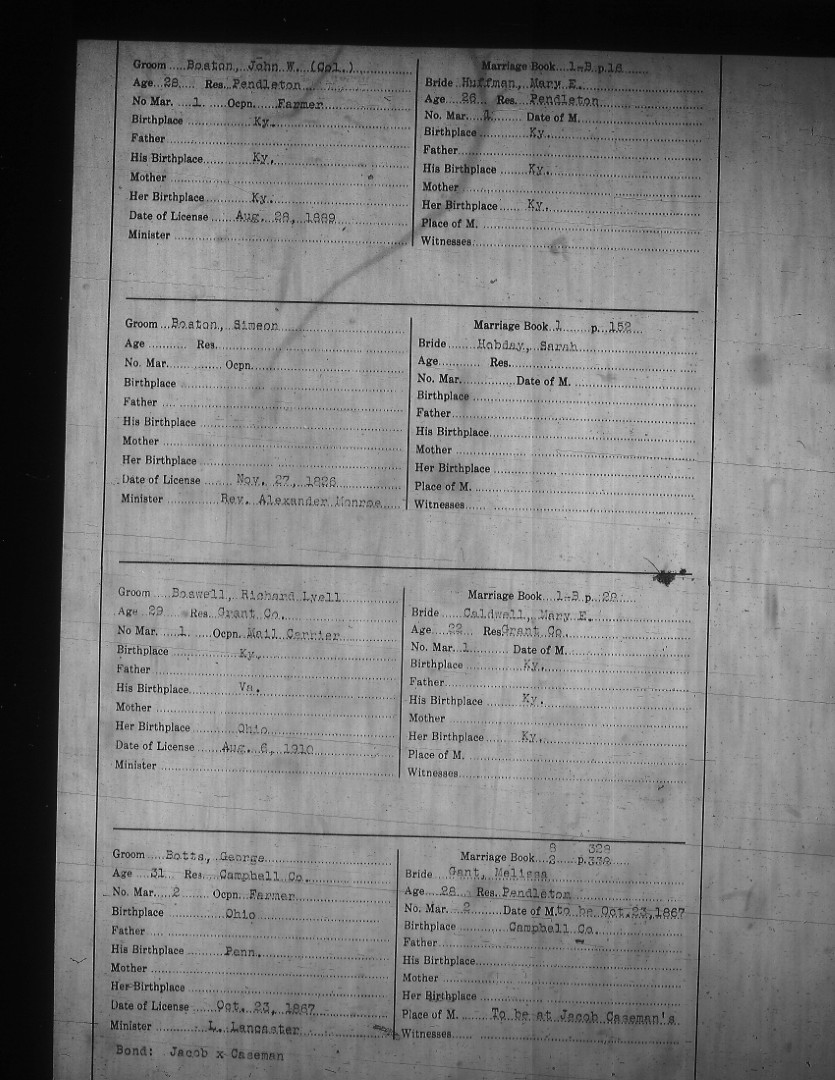 Groom Boaton, John W. (Col.)
Age 28 Res. Pendleton
No Mar. 1. Ocpn. Farmer
Birthplace Ky.
Father
His Birthplace Ky.
Mother
Her Birthplace Ky.
Date of License Aug. 28, 1889
Minister
Marriage Book 1-B p.16
Bride Huffman, Mary E.
Age 26 Res. Pendleton
No. Mar. 1 Date of M.
Birthplace Ky.
Father
His Birthplace Ky.
Mother
Her Birthplace Ky.
Place of M.
Witnesses
Groom Boaton, Simeon
Age Res.
No. Mar. Ocpn.
Birthplace
Father
His Birthplace
Mother
Her Birthplace
Date of License Nov. 27, 1826
Minister Rev. Alexander Monroe
Marriage Book 1 p. 152
Bride Mobday, Sarah
Age Res.
No. Mar. Date of M.
Birthplace
Father
His Birthplace
Mother
Her Birthplace
Place of M.
Witnesses
Groom Boswell, Richard Lyell
Age 29 Res. Grant Co.
No Mar. 1. Ocpn. Mail Carrier
Birthplace Ky.
Father
His Birthplace Va.
Mother
Her Birthplace Ohio
Date of License Aug. 6, 1910
Minister
Marriage Book 1-B p. 28
Bride Caldwell, Mary E.
Age 22 Res. Grant Co.
No. Mar. 1 Date of M.
Birthplace Ky.
Father
His Birthplace Ky.
Mother
Her Birthplace Ky.
Place of M.
Witnesses
Groom Botts, George
Age 31 Res. Campbell Co.
No. Mar. 2 Ocpn. Farmer
Birthplace Ohio
Father
His Birthplace Penn.
Mother
Her Birthplace
Date of License Oct. 23, 1867
Minister L. Lancaster
Bond: Jacob x Caseman
329
Marriage Book 2 p. 338
Bride Gant, Melissa
Age 28 Res. Pendleton
No. Mar. 2 Date of M. to be Oct.23,1867
Birthplace Campbell Co.
Father
His Birthplace
Mother
Her Birthplace
Place of M. To be at Jacob Caseman's
Witnesses